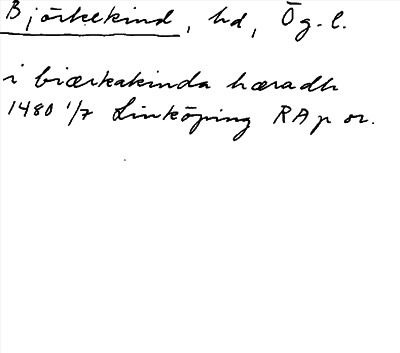 Björkekind, hd, Ög. l.
i biærkakinda hæradh
1480 1/7 Linköping RAp or.